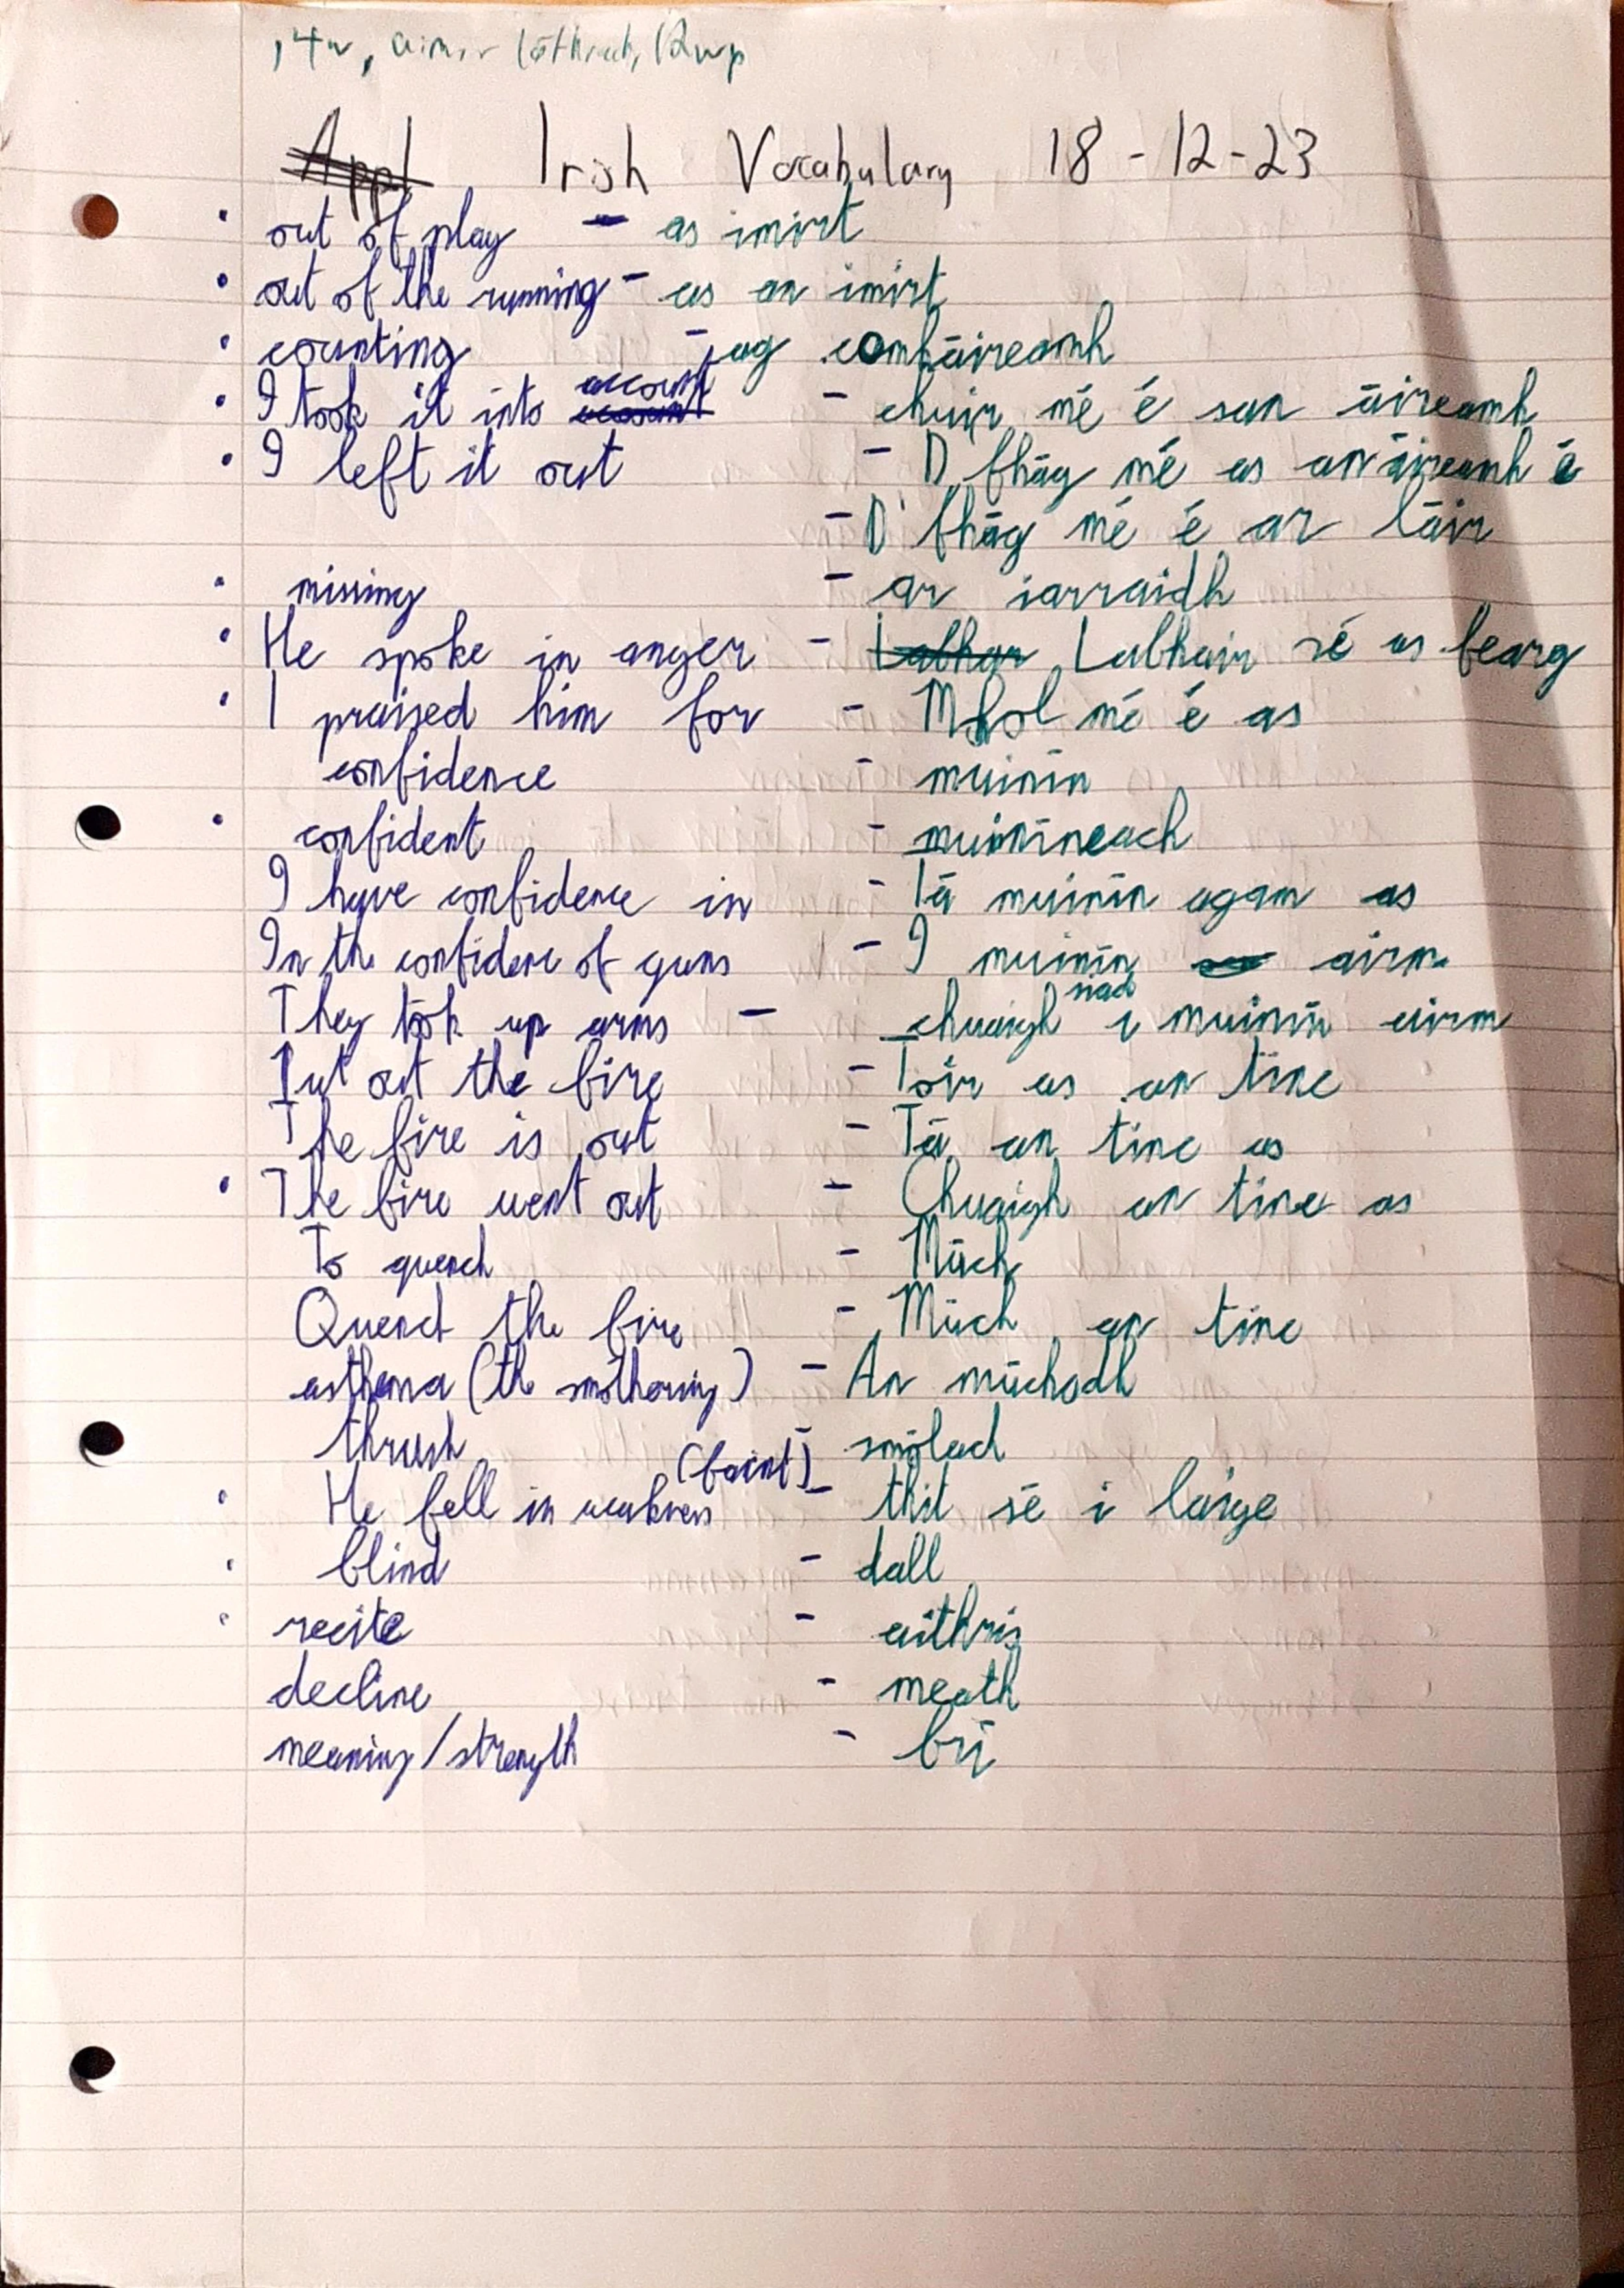 Irish Vocabulary 18-12-23
out of play - as imirt
out of the running - as an imirt
counting - ag comháireamh
I took it into account - chuir mé é san áireamh
I left it out - D'fhág mé as an áireamh é
- D'fhág mé é ar láir
missing - ar iarraidh
He spoke in anger - Labhair sé as fearg
I praised him for - Mhol mé é as
confidence - muinín
confident - muiníneach
I have confidence in - Tá muinín agam as
In the confidence of guns - I muinín airm
They took up arms - chuaigh siad i muinín airm
Put out the fire - Tóir as an tine
The fire is out - Tá an tine as
The fire went out - Chuaigh an tine as
To quench - Múch
Quench the fire - Múch an tine
asthma (the smothering) - An múchadh
thrush - smólach
He fell in weakness (faint) - thit sé i laige
blind - dall
recite - aithris
decline - meath
meaning/strength - brí